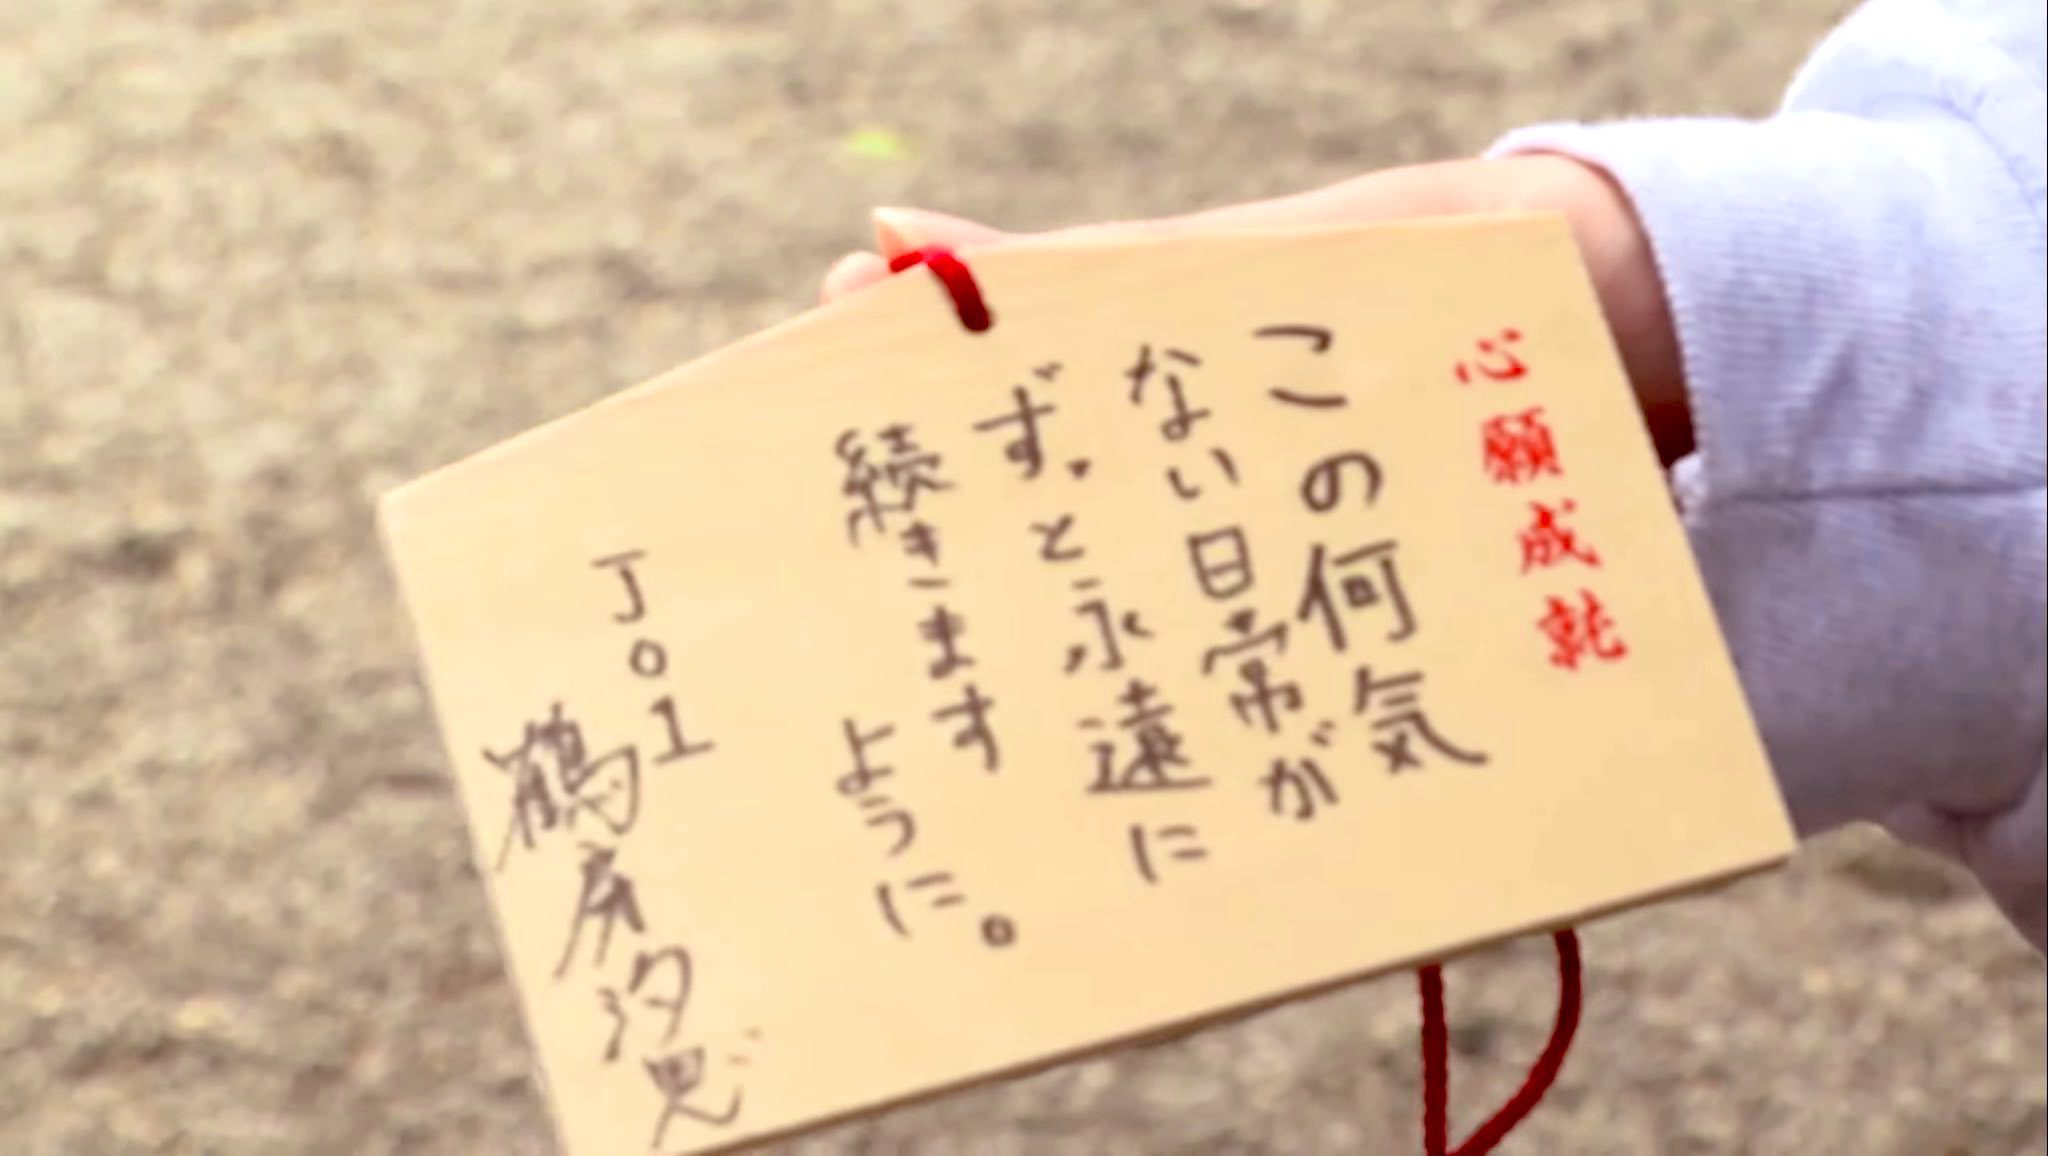 心願成就
この何気
ない日常が
ずっと永遠に
続きます
ように。
JO1
鶴房汐恩